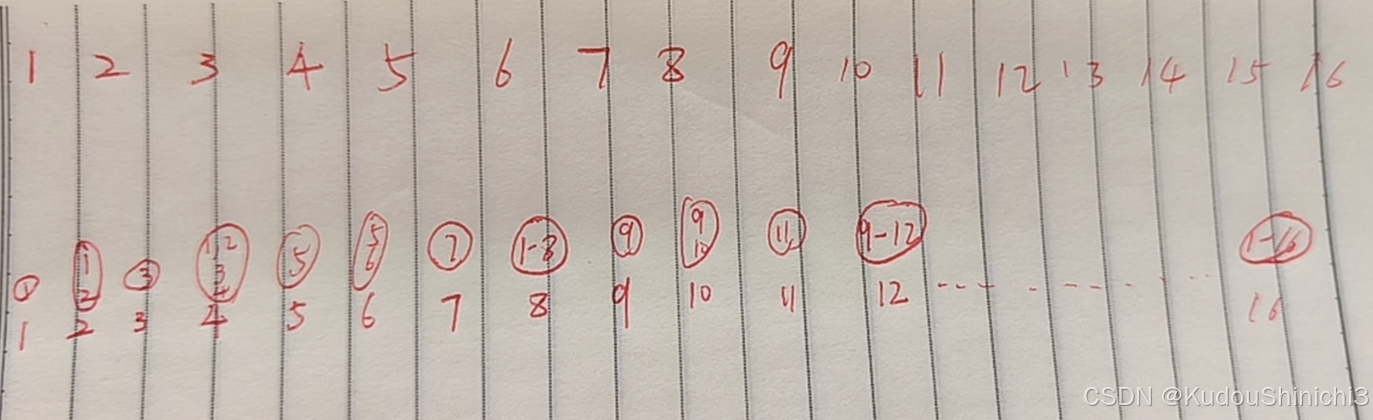 1 2 3 4 5 6 7 8 9 10 11 12 13 14 15 16
1 1 2 3 1,2 3 4 5 5 6 7 1-8 9 9 10 11 9-12 1-16
1 2 3 4 5 6 7 8 9 10 11 12 --- - - - - - - 16
CSDN @KudouShinichi3